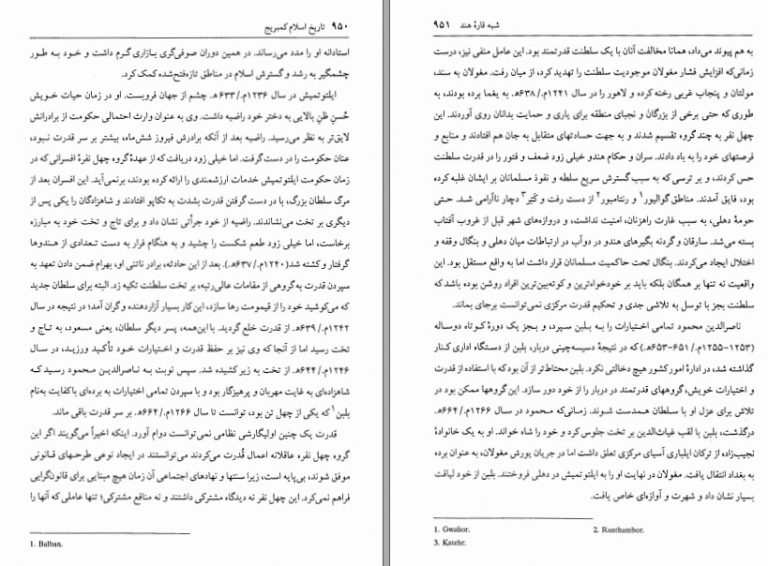 ۹۵۰ تاریخ اسلام کمبریج
استادانه او را مدد می‌رساند. در همین دوران صوفی‌گری بازاری گرم داشت و خود به طور
چشمگیر به رشد و گسترش اسلام در مناطق تازه‌فتح‌شده کمک کرد.
ایلتوتمیش در سال ۱۲۳۶م./۶۳۳ه‍. چشم از جهان فروبست. او در زمان حیات خویش
حُسنِ ظنِ بالایی به دختر خود راضیه داشت. وی به عنوان وارث احتمالی حکومت از برادرانش
لایق‌تر به نظر می‌رسید. راضیه بعد از آنکه برادرش فیروز شش‌ماه، بیشتر بر سر قدرت نبود،
عنان حکومت را در دست گرفت. اما خیلی زود دریافت که از عهدهٔ گروه چهل نفرهٔ افسرانی که در
زمان حکومت ایلتوتمیش خدمات ارزشمندی را ارائه کرده بودند، برنمی‌آید. این افسران بعد از
مرگ سلطان بزرگ، با در دست گرفتن قدرت بشدت به تکاپو افتادند و شاهزادگان را یکی پس از
دیگری بر تخت می‌نشاندند. راضیه از خود جرأتی نشان داد و برای تاج و تخت خود به مبارزه
برخاست، اما خیلی زود طعم شکست را چشید و به هنگام فرار به دست تعدادی از هندوها
گرفتار و کشته شد (۱۲۴۰م./۶۳۷ه‍.). بعد از این حادثه، برادر ناتنی او، بهرام ضمن دادن تعهد به
سپردن قدرت به‌گروهی از مقامات عالی‌رتبه، بر تخت سلطنت تکیه زد. البته برای سلطان جدید
که می‌کوشید خود را از قیمومت رها سازد، این کار بسیار آزاردهنده و گران آمد؛ در نتیجه در سال
۱۲۴۲م./۶۳۹ه‍. از قدرت خلع گردید. با این‌همه، پسر دیگر سلطان، یعنی مسعود، به تاج و
تخت رسید اما از آنجا که وی نیز بر حفظ قدرت و اختیارات خود تأکید ورزید، در سال
۱۲۴۶م./۶۴۴ه‍. از تخت به زیر کشیده شد. سپس نوبت به ناصرالدین محمود رسید که
شاهزاده‌ای به غایت مهربان و پرهیزگار بود و با سپردن تمامی اختیارات به برده‌ای باکفایت به‌نام
بلبن۱ که یکی از چهل تن بود، توانست تا سال ۱۲۶۶م./۶۶۴ه‍. بر سر قدرت باقی ماند.
قدرت یک چنین اولیگارشی نظامی نمی‌توانست دوام آورد. اینکه اخیراً می‌گویند اگر این
گروه چهل نفره عاقلانه اعمال قُدرت می‌کردند می‌توانستند در ایجاد نوعی طرحهای قانونی
موفق شوند، بی‌پایه است، زیرا سنتها و نهادهای اجتماعی آن زمان هیچ مبنایی برای قانون‌گرایی
فراهم نمی‌کرد. این چهل نفر نه دیدگاه مشترکی داشتند و نه منافع مشترکی؛ تنها عاملی که آنها را
1. Balban.
شبه قارهٔ هند ۹۵۱
به هم پیوند می‌داد، همانا مخالفت آنان با یک سلطنت قدرتمند بود. این عامل منفی نیز، درست
زمانی‌که افزایش فشار مغولان موجودیت سلطنت را تهدید کرد، از میان رفت. مغولان به سند،
مولتان و پنجاب غربی رخنه کرده و لاهور را در سال ۱۲۴۱م./۶۳۸ه‍. به یغما برده بودند، به
طوری که حتی برخی از بزرگان و نجبای منطقه برای یاری و حمایت بدانان روی آوردند. این
چهل نفر به چند گروه تقسیم شدند و به جهت حسادتهای متقابل به جان هم افتادند و منابع و
فرصتهای خود را به باد دادند. سران و حکام هندو خیلی زود ضعف و فتور را در قدرت سلطنت
حس کردند، و بر ترسی که به سبب گسترش سریع سلطه و نفوذ مسلمانان بر ایشان غلبه کرده
بود، فایق آمدند. مناطق گوالیور۱ و رنتامبور۲ از دست رفت و کَتِر۳ دچار ناآرامی شد. حتی
حومهٔ دهلی، به سبب غارت راهزنان، امنیت نداشت، و دروازه‌های شهر قبل از غروب آفتاب
بسته می‌شد. سارقان و گردنه بگیرهای هندو در دوآب در ارتباطات میان دهلی و بنگال وقفه و
اختلال ایجاد می‌کردند. بنگال تحت حاکمیت مسلمانان قرار داشت اما به واقع مستقل بود. این
واقعیت نه تنها بر همگان بلکه باید بر خودخواه‌ترین و کوته‌بین‌ترین افراد روشن بوده باشد که
سلطنت بجز با توسل به تلاشی جدی و تحکیم قدرت مرکزی نمی‌توانست برجای بماند.
ناصرالدین محمود تمامی اختیارات را به بلبن سپرد، و بجز یک دورهٔ کوتاه دوساله
(۱۲۵۳-۱۲۵۵م./۶۵۱-۶۵۳ه‍.) که در نتیجهٔ دسیسه‌چینی دربار، بلبن از دستگاه اداری کنار
گذاشته شد، در ادارهٔ امور کشور هیچ دخالتی نکرد. بلبن محتاط‌تر از آن بود که با استفاده از قدرت
و اختیارات خویش، گروههای قدرتمند در دربار را از خود دور سازد. این گروهها ممکن بود در
تلاش برای عزل او با سلطان همدست شوند. زمانی‌که محمود در سال ۱۲۶۶م./۶۶۴ه‍.
درگذشت، بلبن با لقب غیاث‌الدین بر تخت جلوس کرد و خود را شاه خواند. او به یک خانوادهٔ
نجیب‌زاده از ترکان ایلباری آسیای مرکزی تعلق داشت اما در جریان یورش مغولان، به عنوان برده
به بغداد انتقال یافت. مغولان در نهایت او را به ایلتوتمیش در دهلی فروختند. بلبن از خود لیاقت
بسیار نشان داد و شهرت و آوازه‌ای خاص یافت.
1. Gwalior. 2. Ranthambor.
3. Katehr.